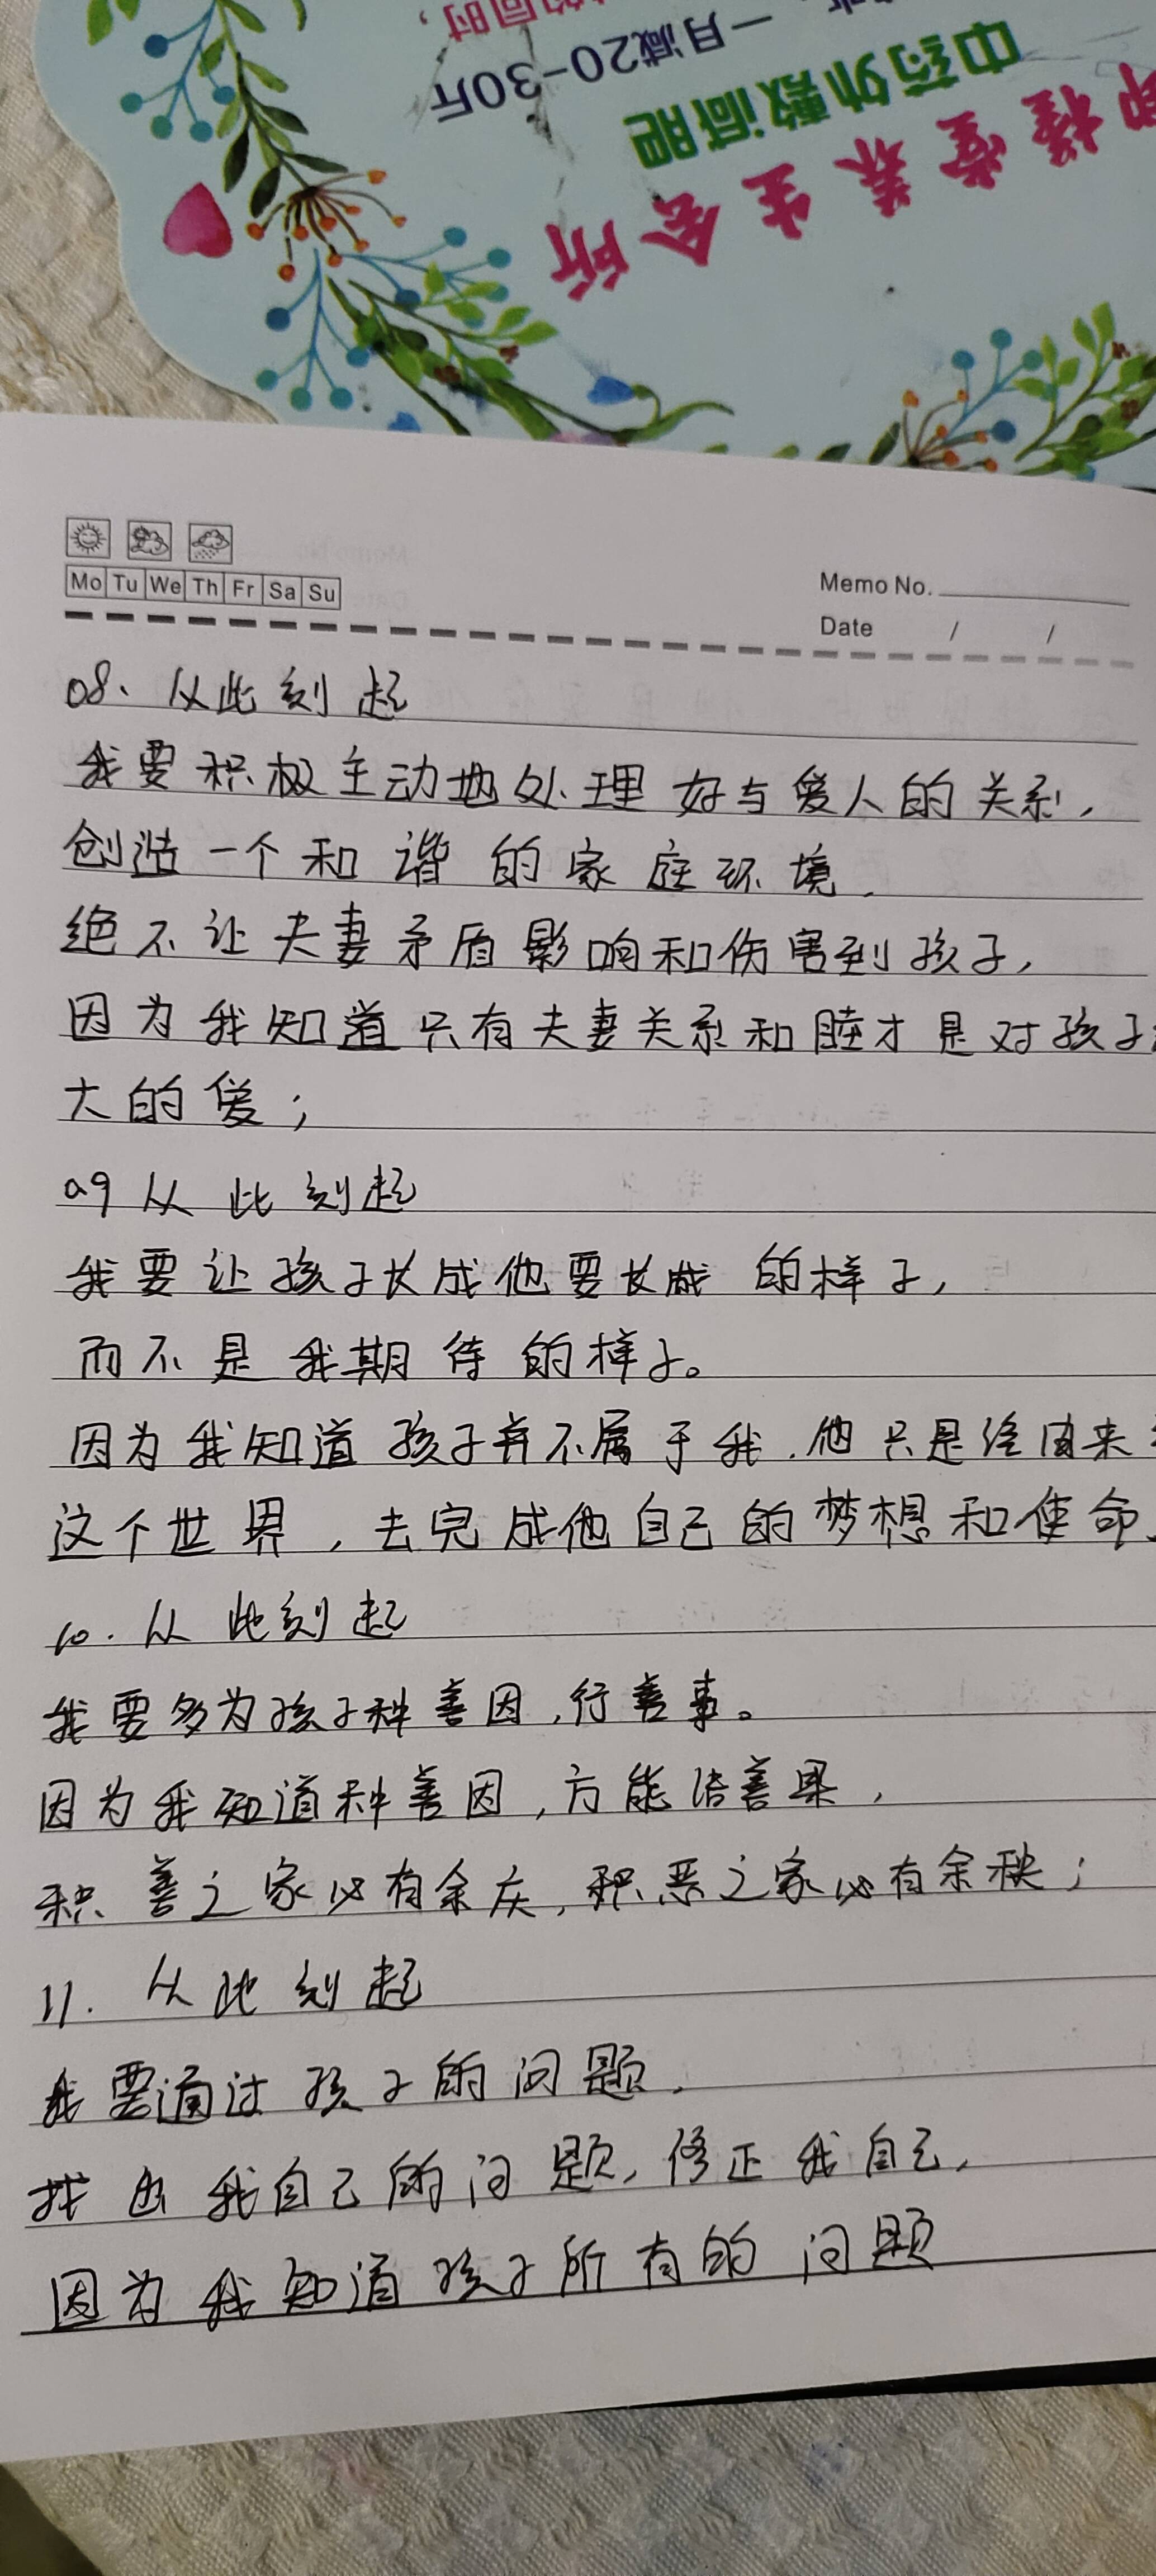 的同时,
一月减20-30斤
中药外敷减肥
堂养生会所
Mo Tu We Th Fr Sa Su
Memo No.
Date / /
08、从此刻起
我要积极主动地处理好与爱人的关系,
创造一个和谐的家庭环境,
绝不让夫妻矛盾影响和伤害到孩子,
因为我知道只有夫妻关系和睦才是对孩子
大的爱;
09从此刻起
我要让孩子长成他要长成的样子,
而不是我期待的样子。
因为我知道孩子并不属于我,他只是经由来
这个世界,去完成他自己的梦想和使命、
10.从此刻起
我要多为孩子种善因,行善事。
因为我知道种善因,方能结善果,
积善之家必有余庆,积恶之家必有余秧;
11.从此刻起
我要通过孩子的问题,
找出我自己的问题,修正我自己,
因为我知道孩子所有的问题